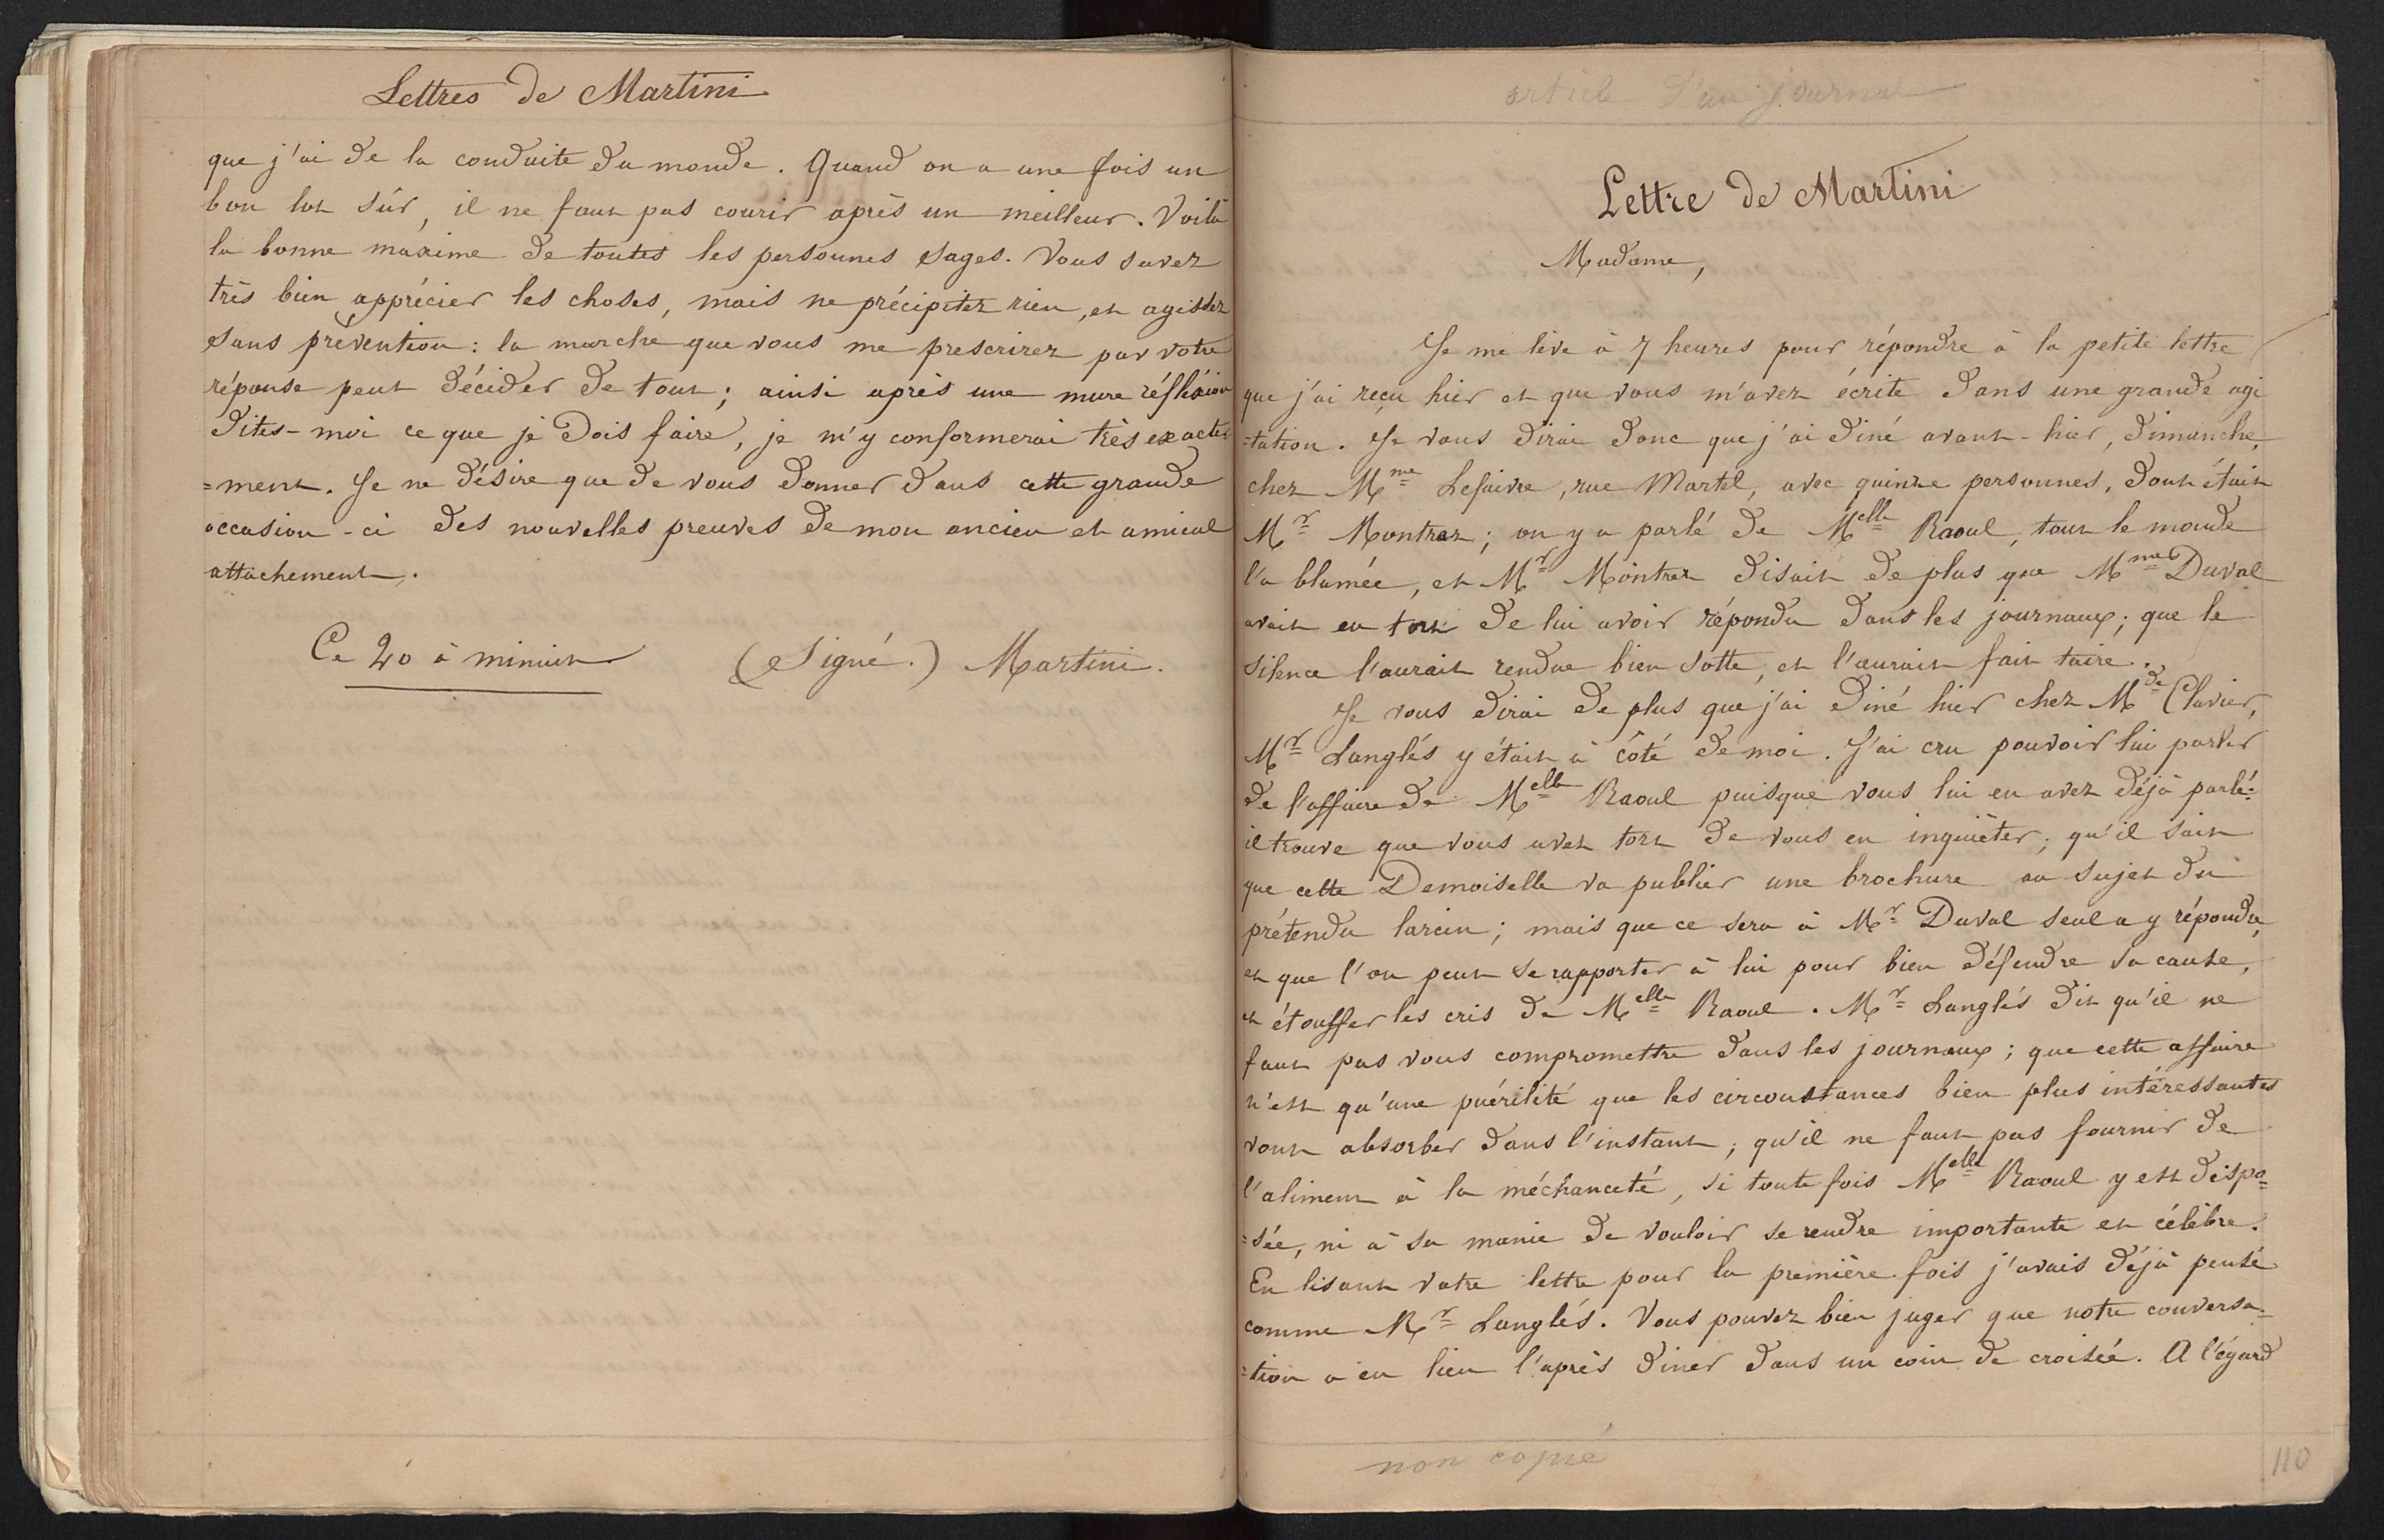 Lettres de Martini
que j'ai de la conduite du monde. Quand on a une fois un
bon lot sûr, il ne faut pas courir après un meilleur. Voilà
la bonne maxime de toutes les personnes sages. Vous savez
très bien apprécier les choses, mais ne précipitez rien, et agissez
sans prévention : la marche que vous me prescrirez par votre
réponse peut décider de tout ; ainsi après une mure réfléxion
dites-moi ce que je dois faire, je m'y conformerai très exacte
=ment. Je ne désire que de vous donner dans cette grande
occasion-ci des nouvelles preuves de mon ancien et amical
attachement.
Ce 20 à minuit (Signé.) Martini.
article d'un journal
Lettre de Martini
Madame,
Je me lève à 7 heures pour répondre à la petite lettre
que j'ai reçu hier et que vous m'avez écrite dans une grande agi
=tation. Je vous dirai donc que j'ai diné avant-hier, dimanche,
chez M.me Lefaivre, rue Martel, avec quinze personnes, dont était
M.r Montrez ; on y a parlé de M.elle Raoul, tout le monde
l'a blamée, et M.r Montrez disait de plus que M.me Duval
avait eu tort de lui avoir répondu dans les journaux ; que le
silence l'aurait rendue bien sotte, et l'aurait fait taire.
Je vous dirai de plus que j'ai diné hier chez M.de Clavier,
M.r Langlés y était à côté de moi. J'ai cru pouvoir lui parler
de l'affaire de M.elle Raoul puisque vous lui en avez déjà parlé :
il trouve que vous avez tort de vous en inquiéter ; qu'il sait
que cette Demoiselle va publier une brochure au sujet du
prétendu larcin ; mais que ce sera à M.r Duval seul a y répondre,
et que l'on peut se rapporter à lui pour bien défendre sa cause,
et étouffer les cris de M.elle Raoul. M.r Langlés dit qu'il ne
faut pas vous compromettre dans les journaux ; que cette affaire
n'est qu'une puérilité que les circonstances bien plus intéressantes
vont absorber dans l'instant ; qu'il ne faut pas fournir de
l'aliment à la méchanceté, si toute fois M.elle Raoul y est dispo=
=sée, ni à sa manie de vouloir se rendre importante et célèbre.
En lisant votre lettre pour la première fois j'avais déjà pensé
comme M.r Langlés. Vous pouvez bien juger que notre conversa=
=tion a eu lieu l'après diner dans un coin de croisée. A l'égard
non copié
110